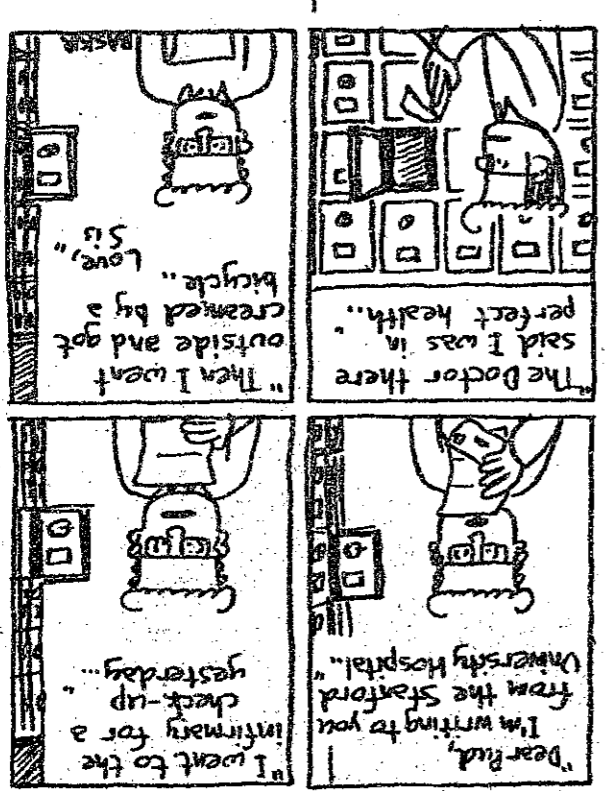 "Dear Pud,
I'm writing to you
from the Stanford
University Hospital.."
"I went to the
infirmary for a
check-up
yesterday..."
"The Doctor there
said I was in
perfect health.."
"Then I went
outside and got
creamed by a
bicycle..
Love,
Sis"